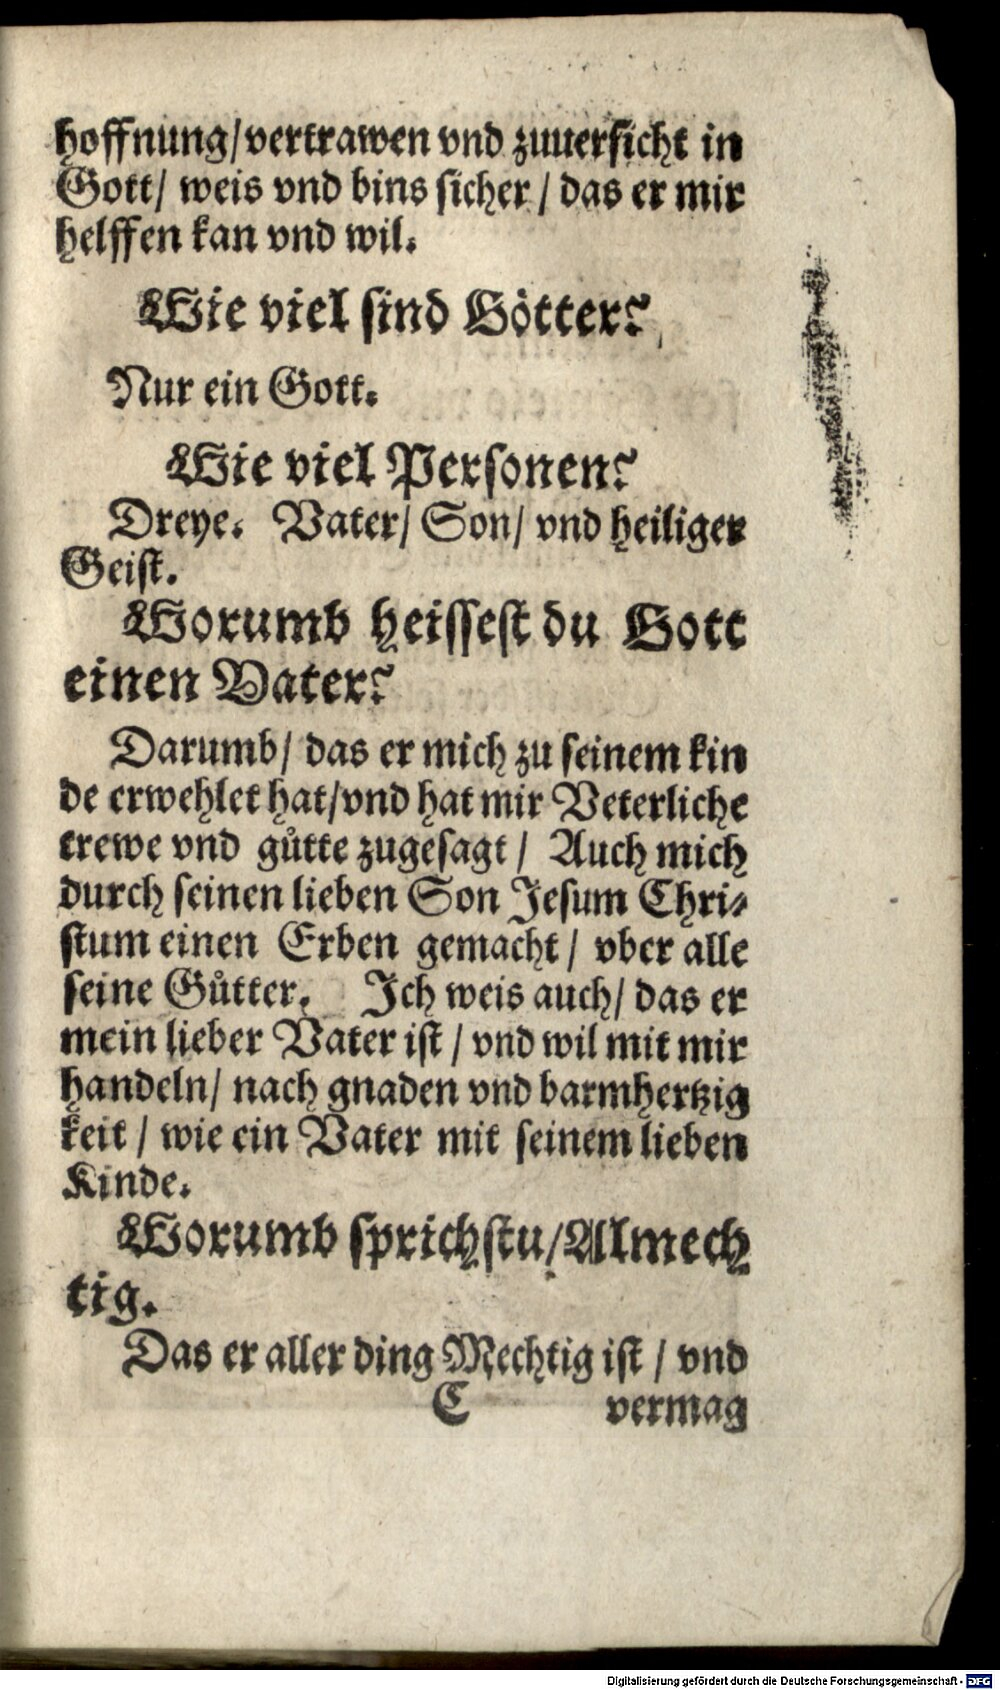 hoffnung/vertrawen vnd zuuersicht in
Gott/ weis vnd bins sicher / das er mir
helffen kan vnd wil.
Wie viel sind Götter?
Nur ein Gott.
Wie viel Personen?
Dreye. Vater/ Son/ vnd heiliger
Geist.
Worumb heissest du Gott
einen Vater?
Darumb/ das er mich zu seinem kin
de erwehlet hat/vnd hat mir Veterliche
trewe vnd guͤtte zugesagt / Auch mich
durch seinen lieben Son Jesum Chri-
stum einen Erben gemacht / vber alle
seine Guͤtter. Ich weis auch/ das er
mein lieber Vater ist / vnd wil mit mir
handeln/ nach gnaden vnd barmhertzig
keit / wie ein Vater mit seinem lieben
Kinde.
Worumb sprichstu/Almech
tig.
Das er aller ding Mechtig ist / vnd
C vermag
Digitalisierung gefördert durch die Deutsche Forschungsgemeinschaft - DFG